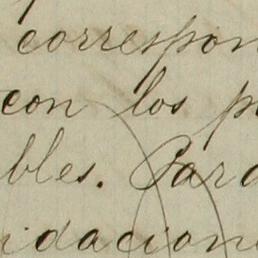 correspon
con los p
bles. Para
idacion